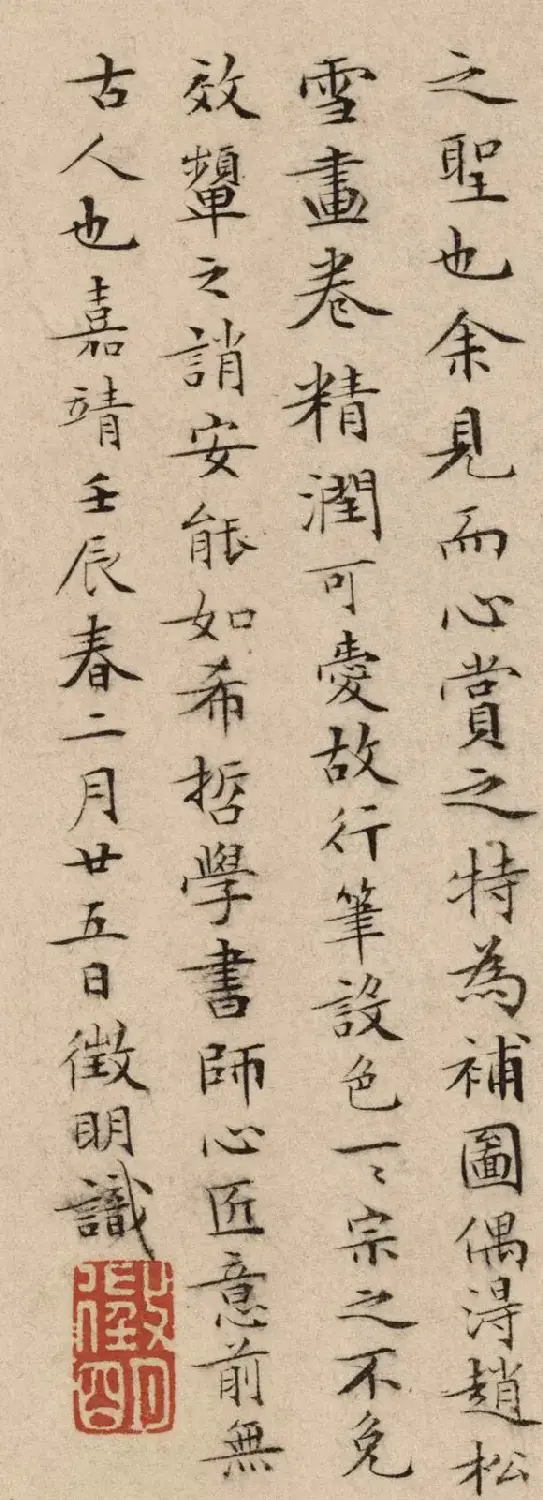 之聖也余見而心賞之特為補圖偶淂趙松
雪畫卷精潤可愛故行筆設色一〻宗之不免
效顰之誚安能如希哲學書師心匠意前無
古人也嘉靖壬辰春二月廿五日徵明識
徵明